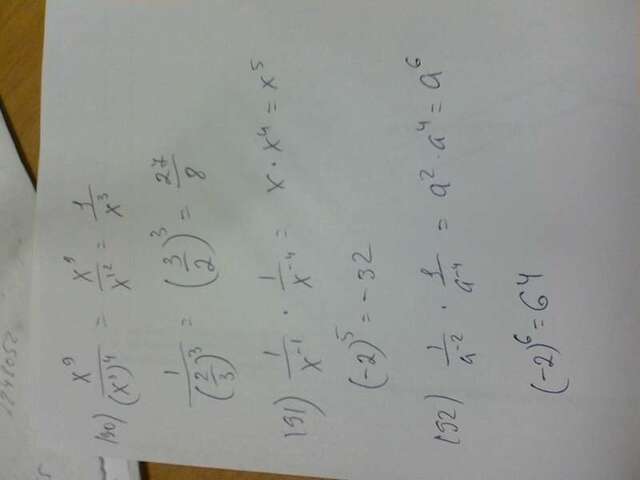 190) x^9/(x^3)^4 = x^9/x^12 = 1/x^3
1/(2/3)^3 = (3/2)^3 = 27/8
191) 1/x^-1 · 1/x^-4 = x · x^4 = x^5
(-2)^5 = -32
192) 1/a^-2 · 1/a^-4 = a^2 · a^4 = a^6
(-2)^6 = 64